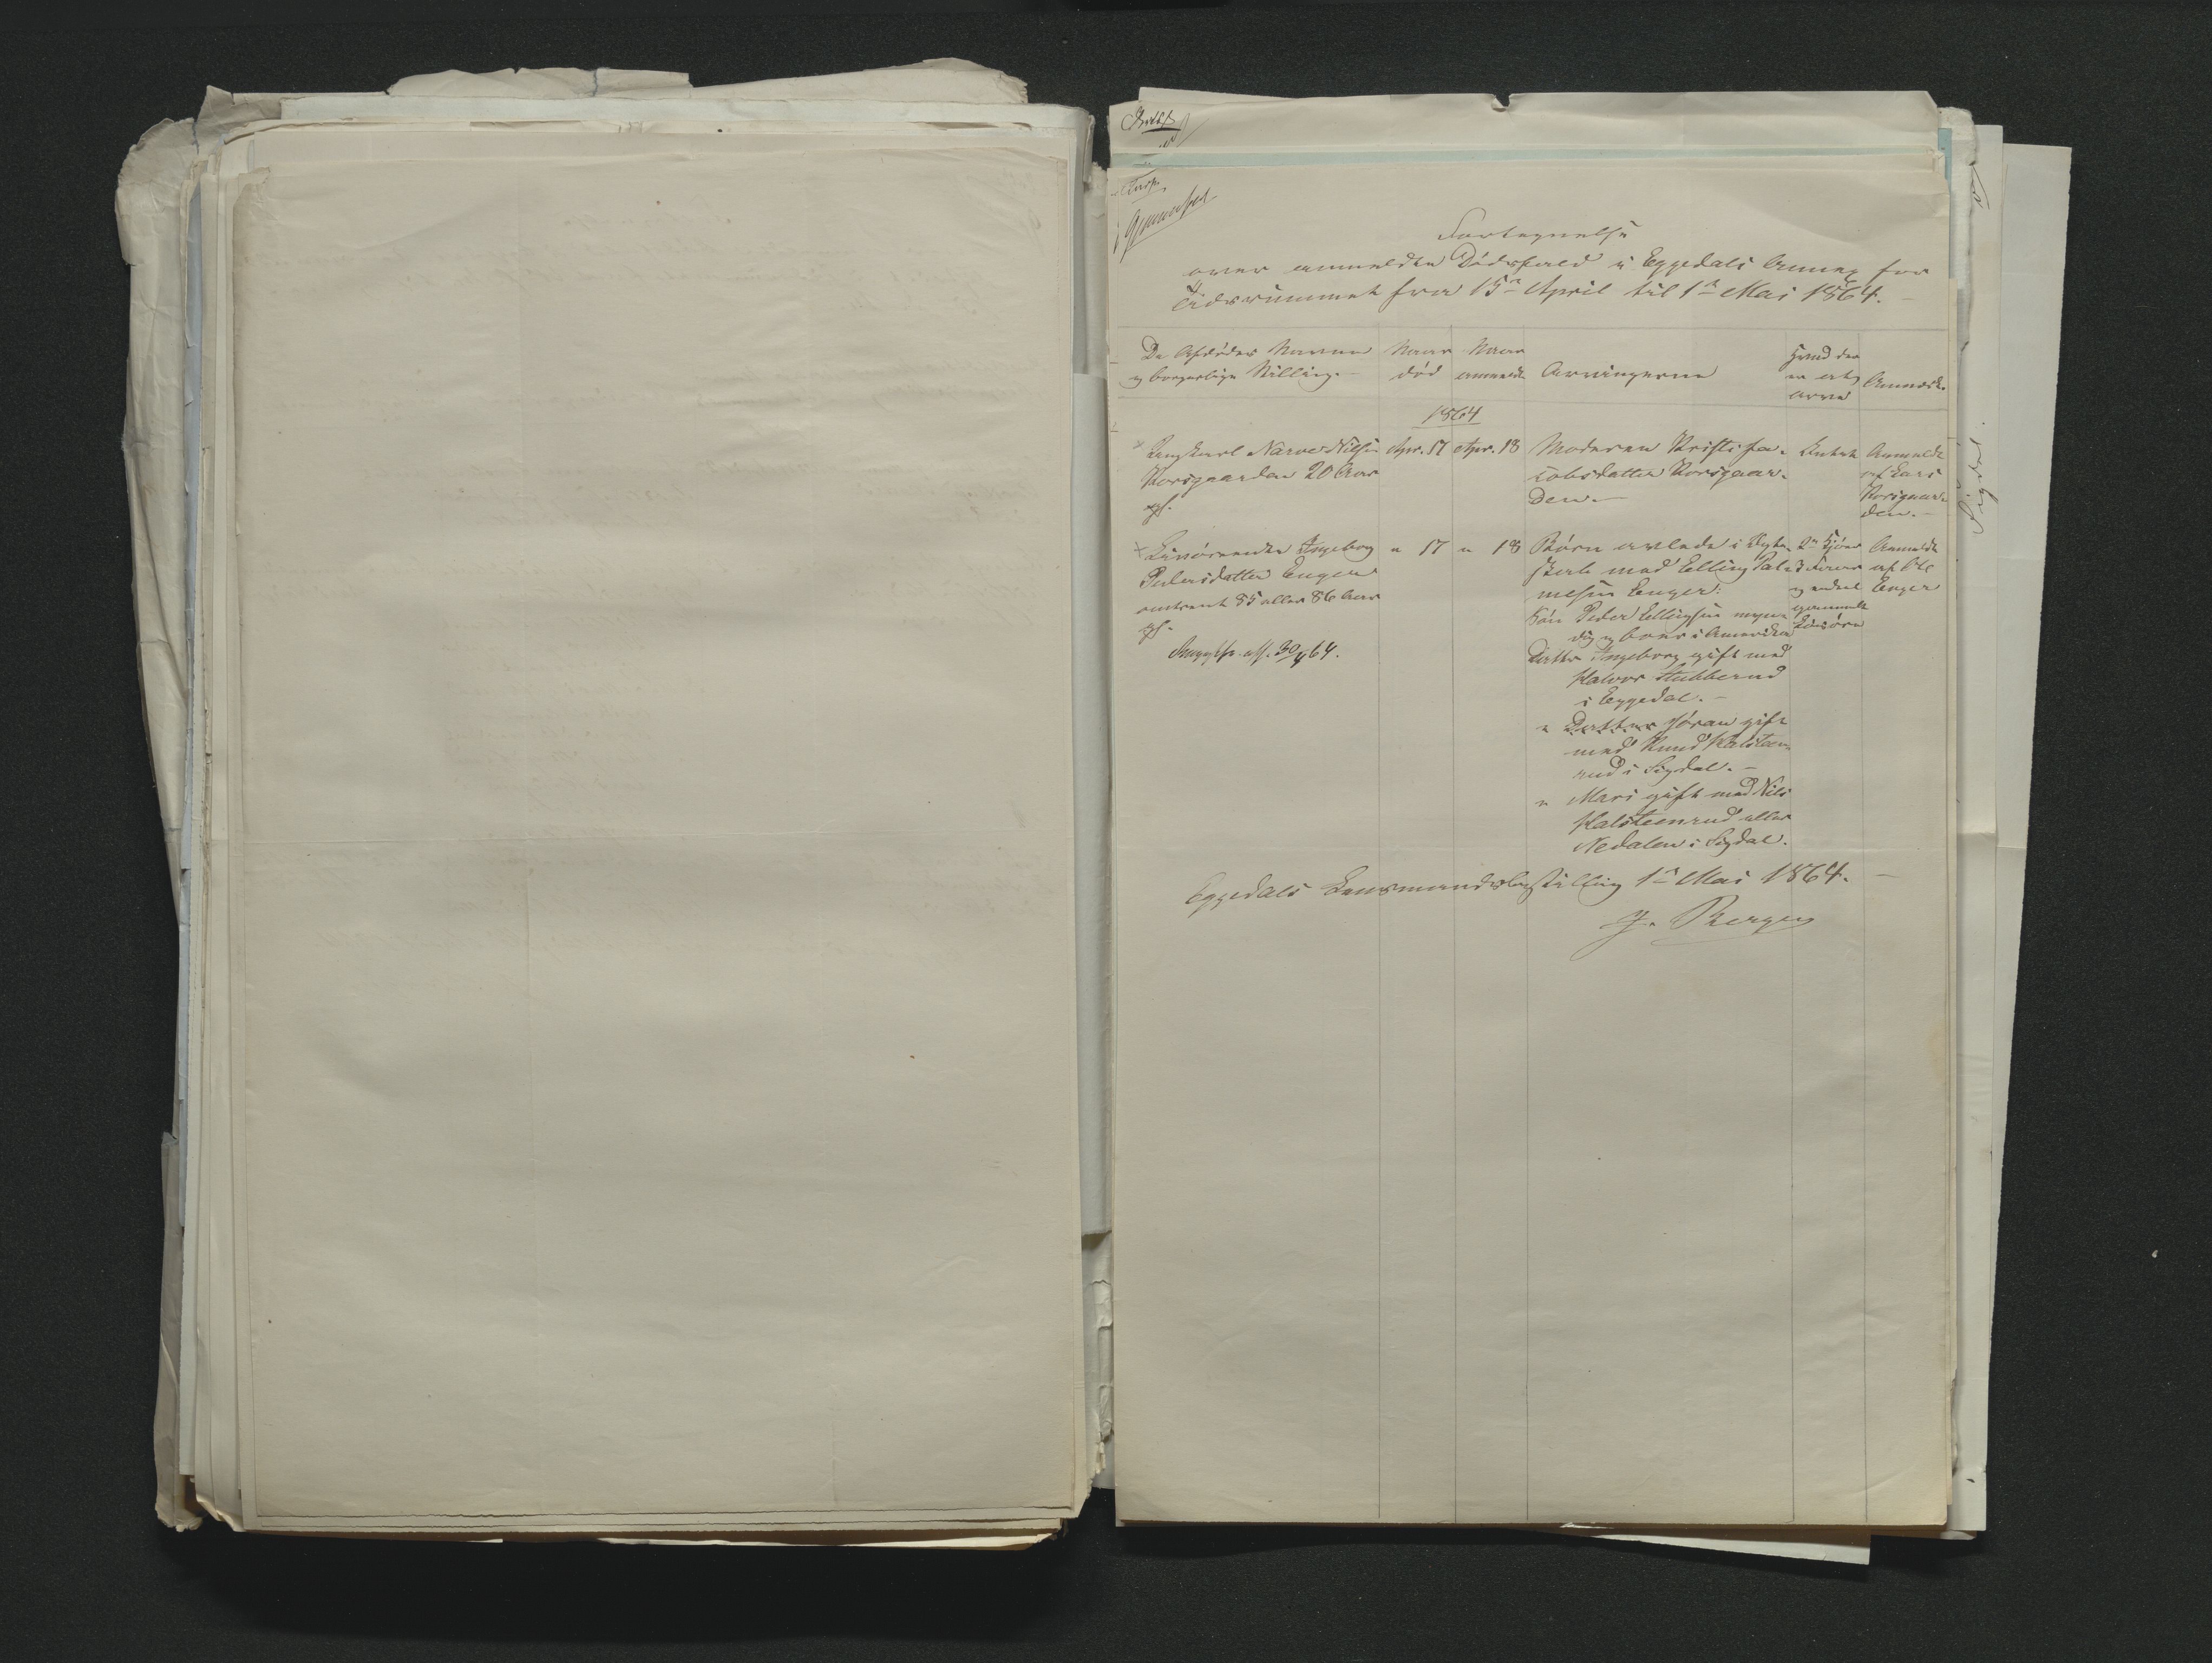 Fortegnelse
over anmeldte Dødsfald i Eggedals Annex for
Tidsrummet fra 15de April til 1de Mai 1864. –
De Afdødes Navne
og borgerlige Stilling. –
Naar
død
Naar
anmeldt
Arvingerne
Hvad der
er at
arve
Anmærk.
1864
Ungkarl Narve Nilsen
Korsgaarden 20 Aar
Apr. 17
Apr. 18
Moderen Kristi Ja-
cobsdatter Korsgaar-
den. –
Intet
Anmeldt
af Lars
Korsgaar-
den. –
Livøreenke Ingeborg
Pedersdatter Enger
omtrent 85 eller 86 Aar
" 17
" 18
Børn avlede i Ægte-
skab med Elling
Enger:
Søn Peder Ellingsen myn-
dig og boer i Amerika
Datter Ingeborg gift med
Halvor Stubberud
i Eggedal. –
" Datter Jöran gift
med Knud Kalsteen-
rud i Sigdal. –
" Mari gift med Nils
Kalsteenrud eller
Nedalen i Sigdal.
2 Kjør
3 Faar
og andet
gammelt
Løsøre
Anmeldt
af Ole
Enger
30/4 64.
Eggedals Lensmandsbestilling 1de Mai 1864. –
J. Bergen
Sigdal.